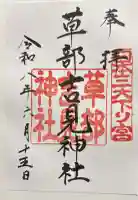 奉拝
日本三大下り宮
草部吉見神社
草部
神社
令和八年六月十五日